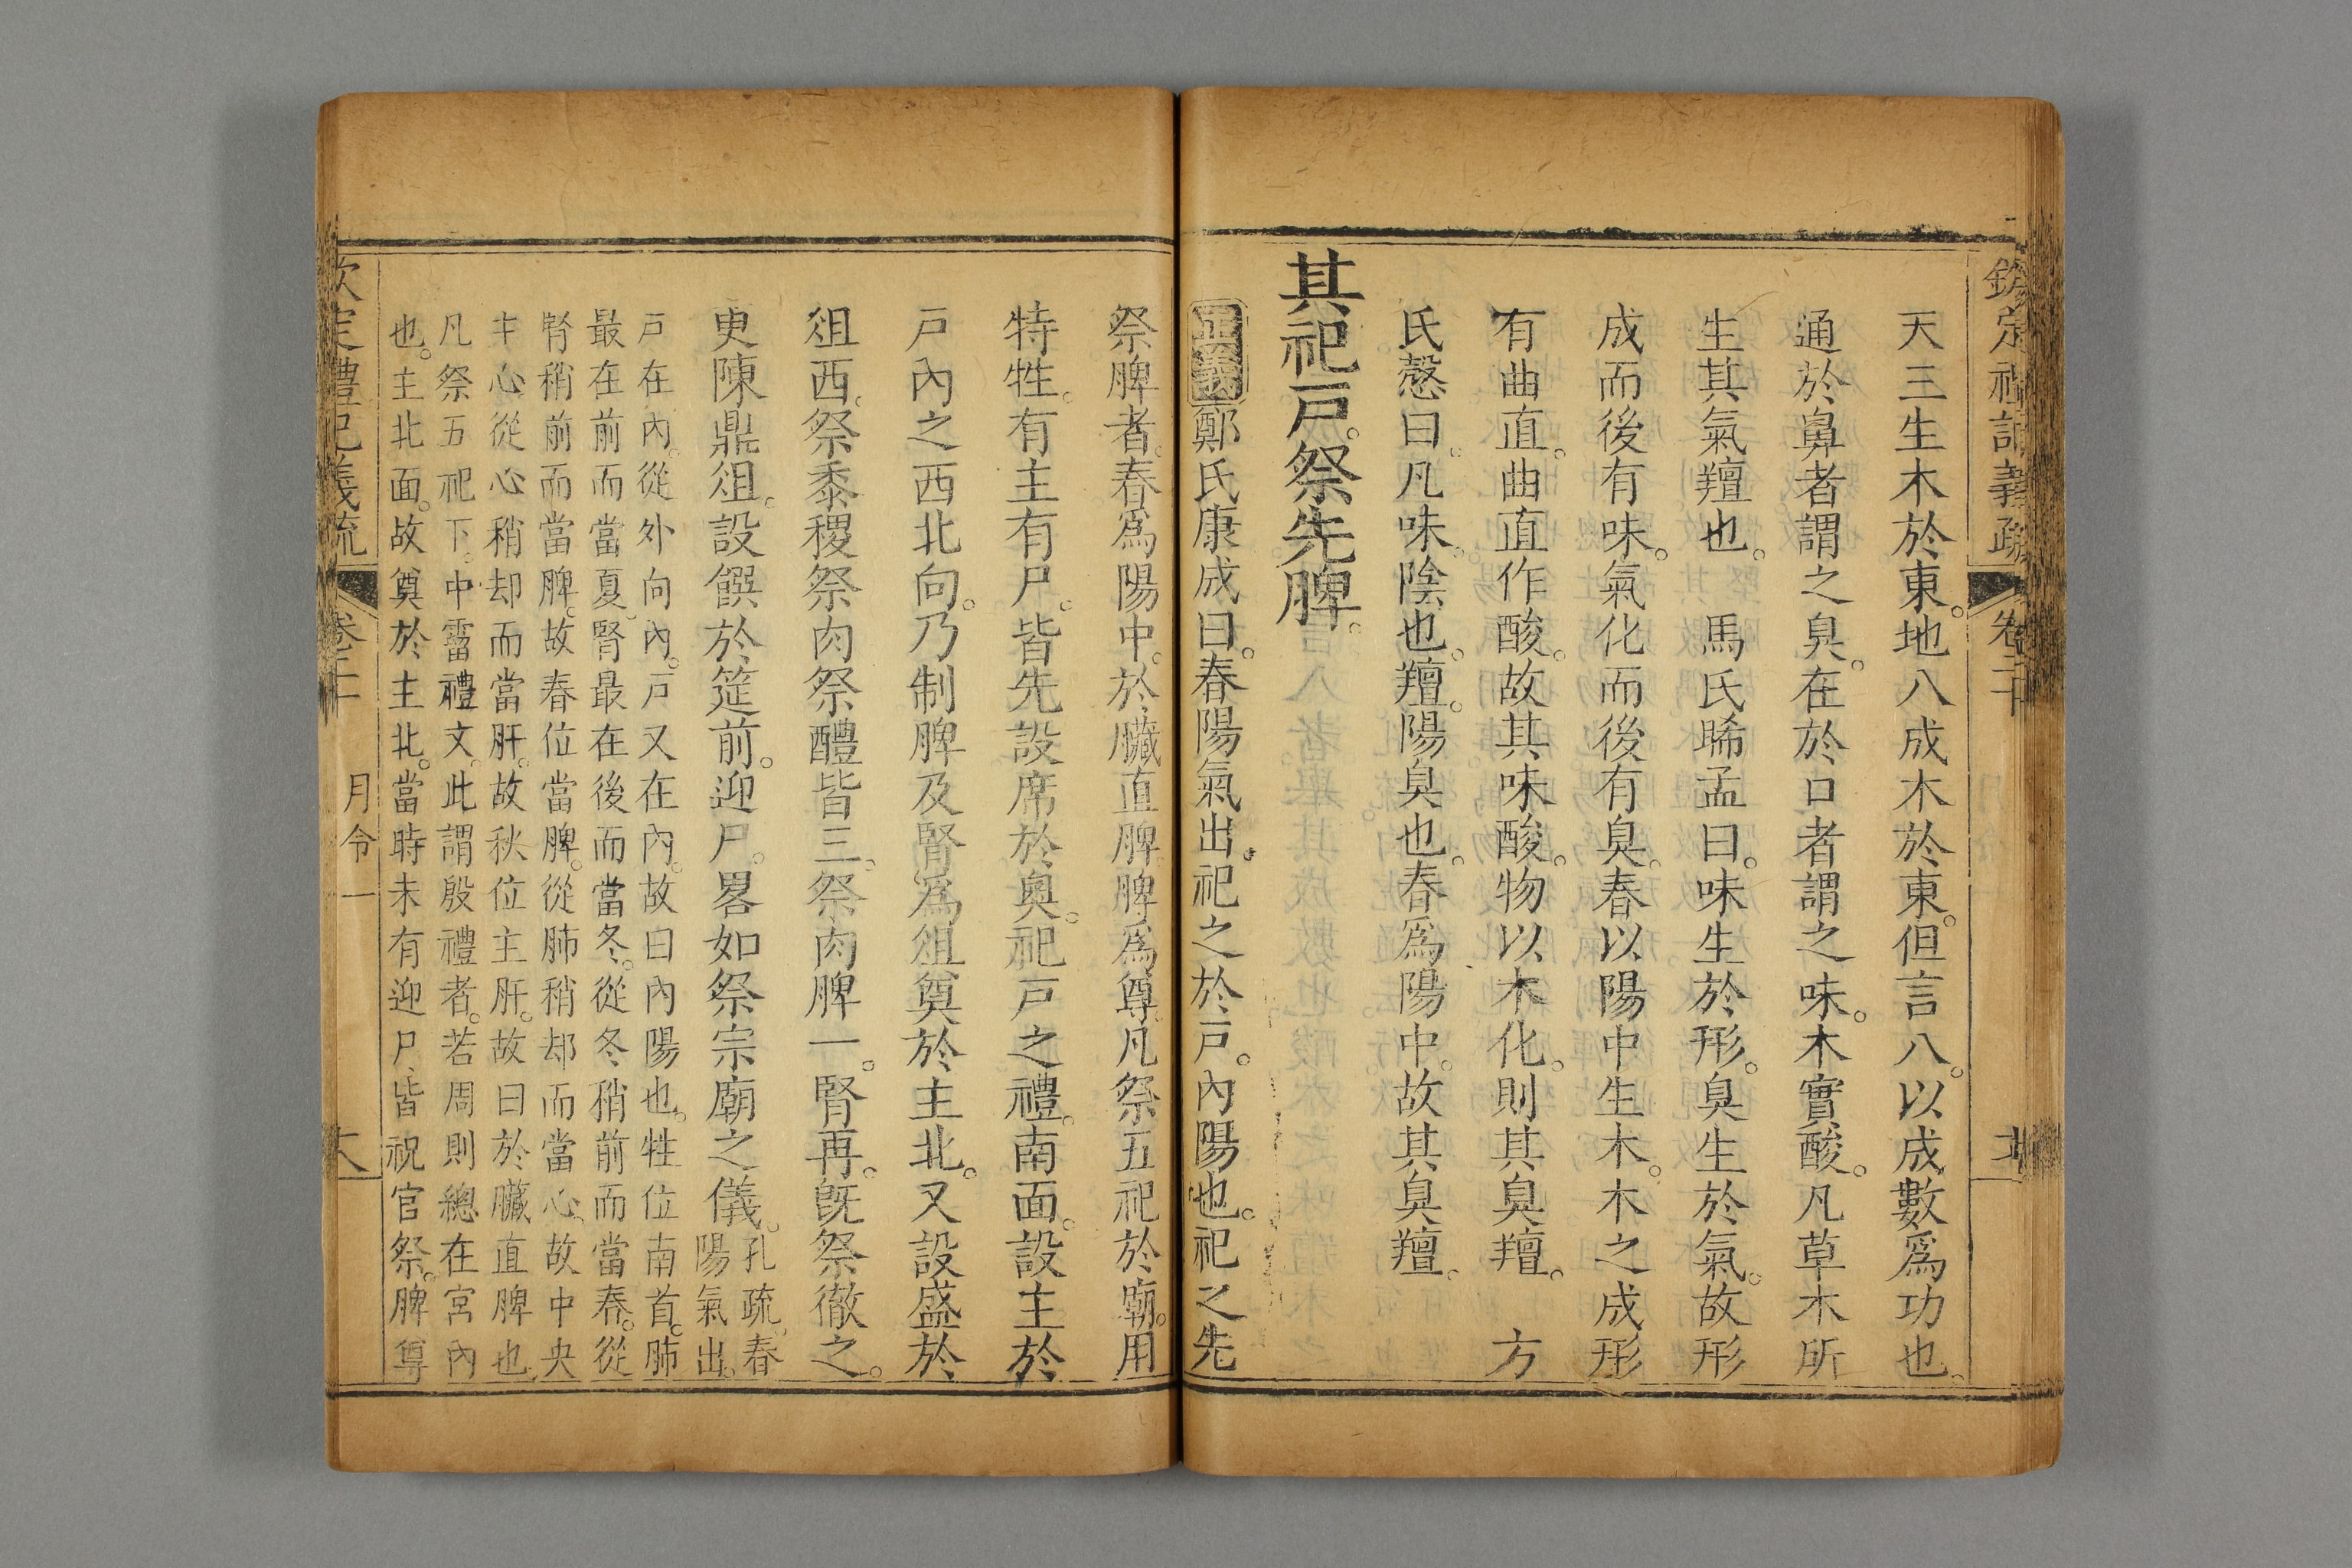 欽定禮記義疏 卷二十
天三生木於東。地八成木於東。但言八。以成數爲功也。
通於鼻者謂之臭。在於口者謂之味。木實酸。凡草木所
生其氣羶也。　馬氏晞孟曰。味生於形。臭生於氣。故形
成而後有味。氣化而後有臭。春以陽中生木。木之成形
有曲直。曲直作酸。故其味酸。物以木化。則其臭羶。　方
氏慤曰。凡味。陰也。羶。陽臭也。春爲陽中。故其臭羶。
其祀戸。祭先脾。
正義鄭氏康成曰。春陽氣出。祀之於戸。內陽也。祀之先
祭脾者。春爲陽中。於臟直脾。脾爲尊。凡祭五祀於廟。用
特牲。有主有尸。皆先設席於奧。祀戸之禮。南面。設主於
戸內之西北向。乃制脾及腎爲俎奠於主北。又設盛於
俎西。祭黍稷祭肉祭醴皆三。祭肉脾一。腎再。旣祭徹之。
更陳鼎俎。設饌於筵前。迎尸。畧如祭宗廟之儀。
孔疏。春
陽氣出。
戸在內。從外向內。戸又在內。故曰內陽也。牲位南首。肺
最在前而當夏。腎最在後而當冬。從冬稍前而當春。從
腎稍前而當脾。故春位當脾。從肺稍却而當心。故中央
主心。從心稍却而當肝。故秋位主肝。故曰於臟直脾也。
凡祭五祀下。中霤禮文。此謂殷禮者。若周則總在宮內
也。主北面。故奠於主北。當時未有迎尸。皆祝官祭。脾尊
欽定禮記義疏 卷二十 月令一